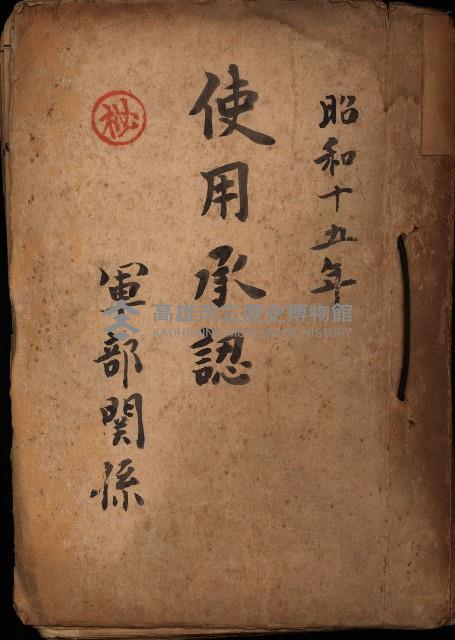 昭和十五年
使用承認
㊙
軍部関係
高雄市立歷史博物館
KAOHSIUNG MUSEUM OF HISTORY